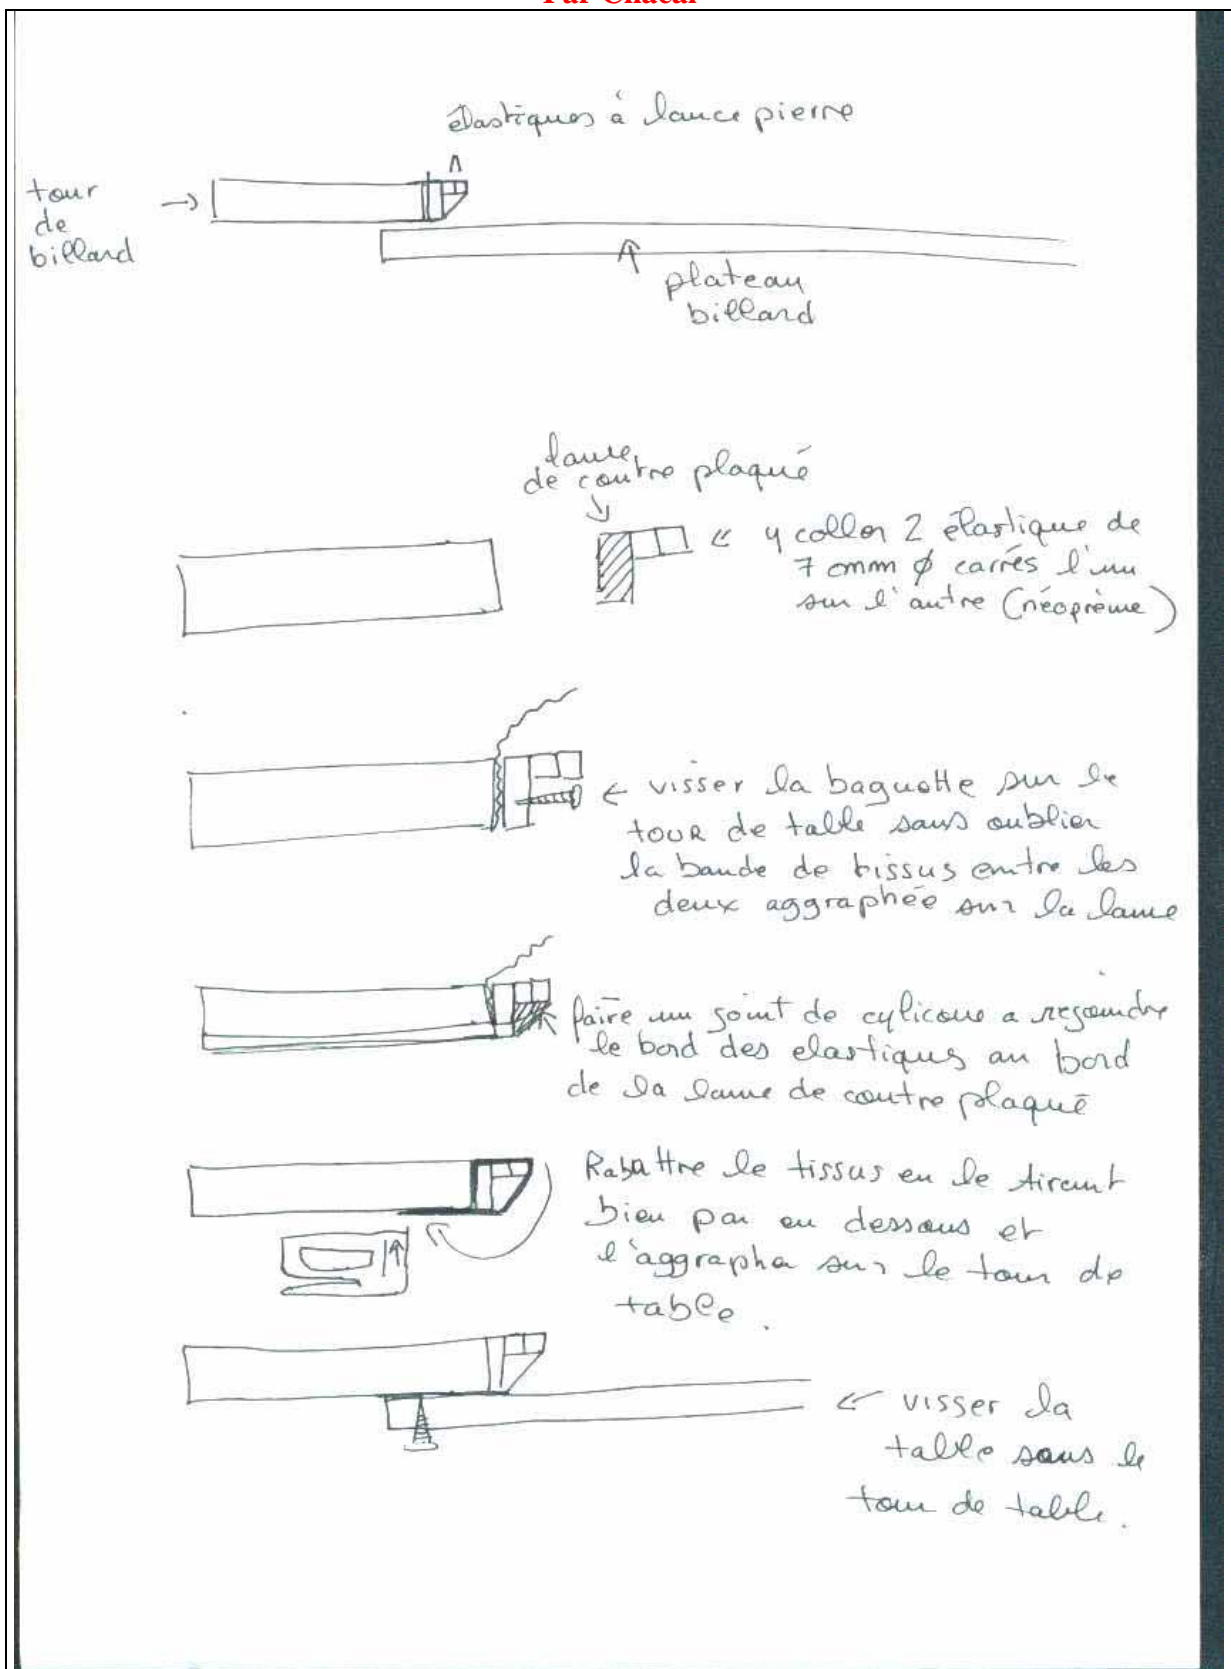 Par Chacal
élastiques à lance pierre
tour
de
billard
plateau
billard
lame
de contre plaqué
y coller 2 élastique de
7 mm ϕ carrés l'un
sur l'autre (néoprème)
visser la baguette sur le
tour de table sans oublier
la bande de tissus entre les
deux aggraphée sur la lame
faire un joint de cylicone a rejoindre
le bord des elastiques au bord
de la lame de contre plaqué
Rabattre le tissus en le tirant
bien par en dessous et
l'aggrapha sur le tour de
table.
visser la
table sous le
tour de table.